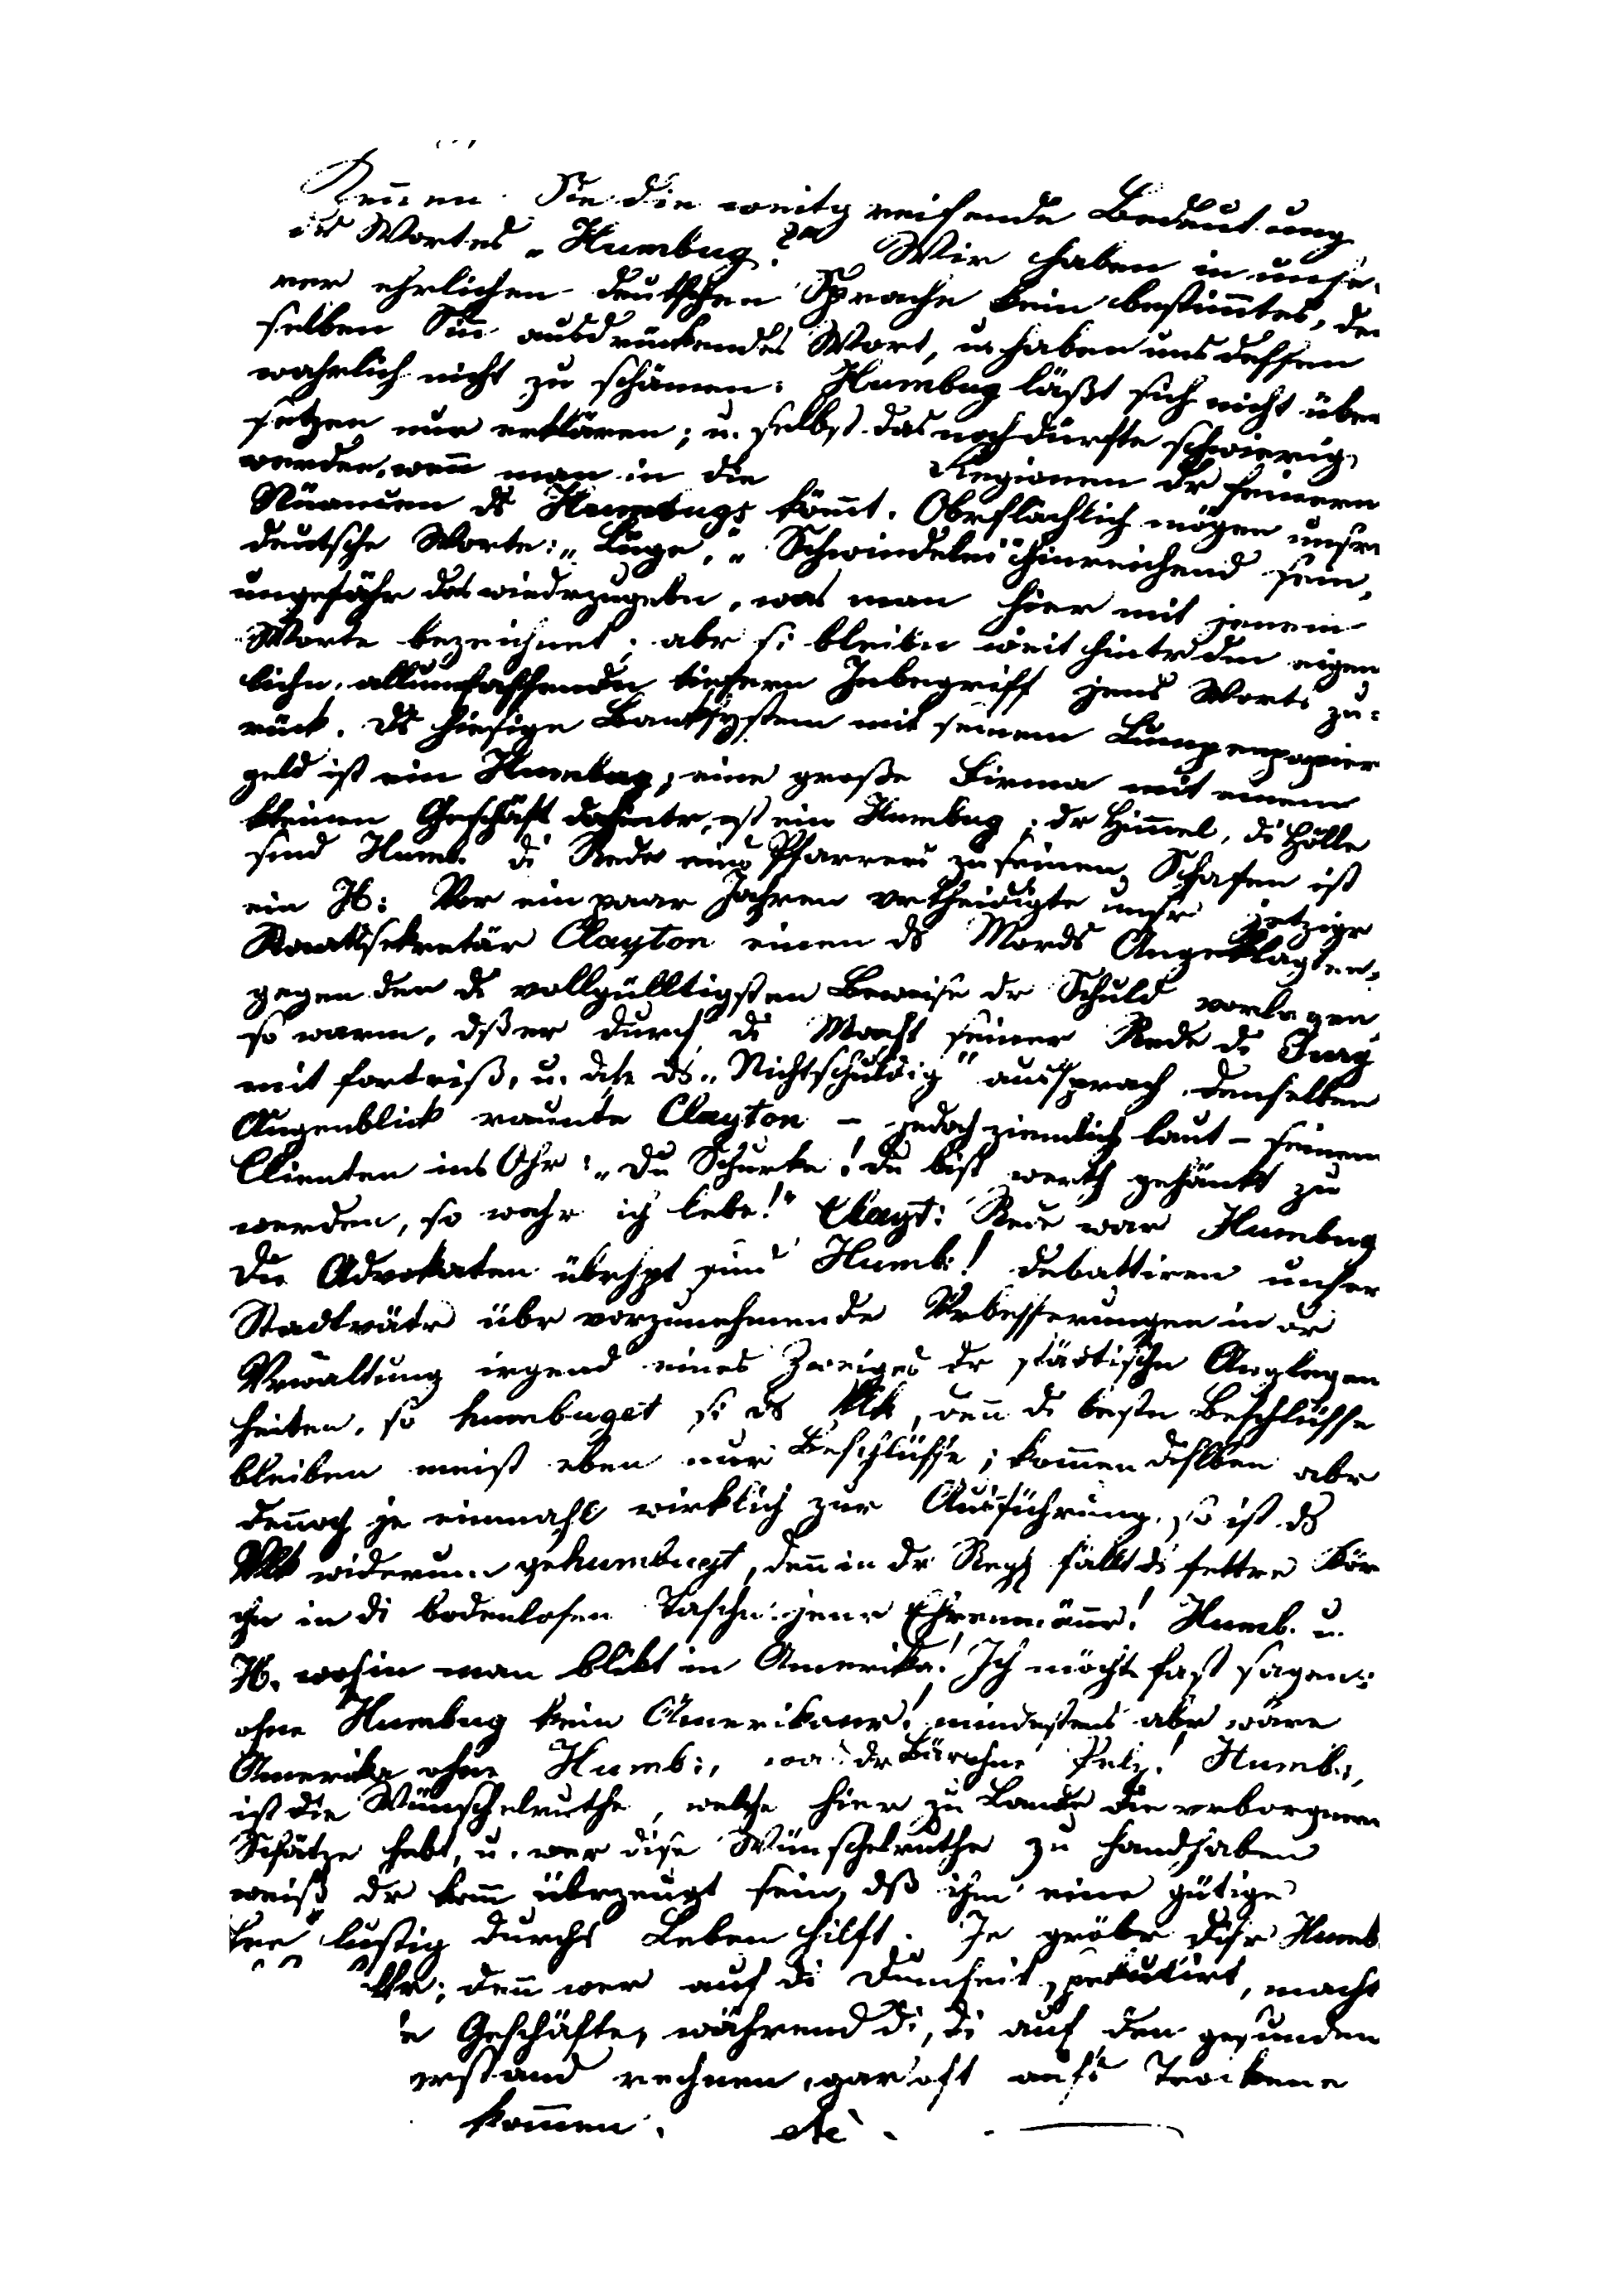 Kennen Sie die weitgreifende Bedeutung
des Wortes „Humbug?“ Wir haben in unse-
rer ehrlichen deutschen Sprache kein bestim̅tes, den
selben Sin̅ ausdrückendes Wort, u. haben uns dessen
wahrlich nicht zu schämen: Humbug läßt sich nicht über
setzen nur erklären; u. selbst das noch dürfte schwierig
werden, wen̅ man in die Regionen dr feineren
Nüancen ds Humbugs köm̅t. Obrflächlich mögen unsre
deutsche Worte: „Lüge, „Schwindelei“ hinreichend sein,
ungefähr das wiedrzugebn, was man hier mit jenem
Worte bezeichnet; abr si bleibn weit hintr dem eigen
lichn, allumfassendn tiefern Inbegriff jens Worts zu-
rück. Ds hiesige Banksystem mit seinem Lumpenpapier
geld ist ein Humbug; eine große Firma mit einem
kleinen Geschäft dahintr, ist ein Humbug; dr Him̅el, di Hölle
sind Humb. di Rede eins Pfarrers zu seinen Schafen ist
ein H: Vor ein paar Jahren vrtheidigte unsr jetzigr
Staatssekretär Clayton einen ds Mords Angeklagten,
gegen den di vollgülltigsten Beweise dr Schuld vorlagen
so warm, dß er durch di Macht seiner Rede di Jury
mit fortriß, u. dse ds „Nichtschuldig“ aussprach. Denselben
Augenblick raunte Clayton – jedoch ziemlich laut – seinem
Clienten ins Ohr: „Du Schurke! du bist werth gehänkt zu
werden, so wahr ich lebe!“ Clayt: Rede war Humbug
Die Advokaten übrhpt sind Humb:! Debattiren unser
Stadtvätr übr vorzunehmende Vrbesserungen in dr
Vrwaltung irgend eines Zweiges dr städtischn Anglegen
heiten, so humbuget si ds Vlk, den̅ di bestn Beschlüsse
bleiben meist eben nur Beschlüsse; kom̅en dislben abr
den̅och je einmahl wirklich zur Ausführung, so ist ds
Vlk widerum gehumbugt, den̅ in dr Regl fällt ds fettre Kör
chn in di bodenlosen Taschn jenr Ehrenmän̅r! Humb. u.
H. wohin man blikt in Amerika! Ich möchte fast sagen:
ohne Humbug kein Amerikanr! mindestens abr wäre
Amerika ohne Humb:, was dr Bär ohne Pelz! Humb:,
ist die Wünschelruthe, welche hier zu Lande die vrborgnen
Schätze hebt, u. wer dise Wünschelruthe zu handhaben
weiß dr kan̅ übrzeugt sein, dß ihm eine gütige
Fee lustig durchs Leben hilft. Je gröbr disr Humb.
; den̅ wer auf di Dum̅heit spekulirt, macht
e Geschäfte, während di, di auf den gesunden
erstand rechnen, gar oft aufs Trockene
kom̅en. etc.